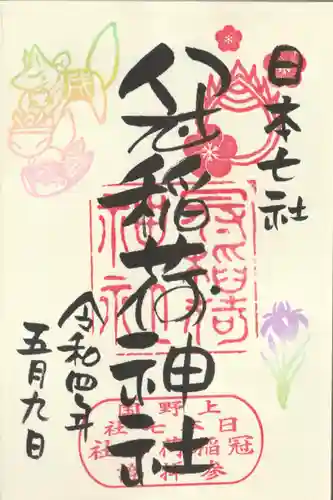 日本七社
冠稲荷神社
令和四年
五月九日
冠稲荷神社
上野國
日本七社
冠稲荷神社
参拝